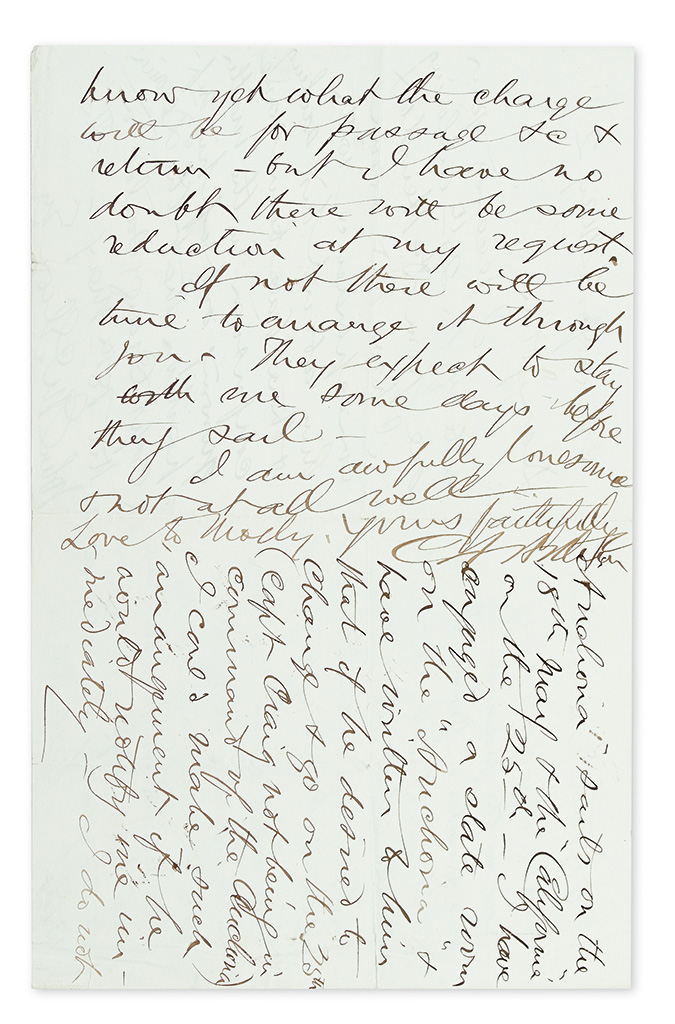 "Anchoria" sails on the
18th May & the "California"
on the 25th – I have
engaged a state room
on the "Anchoria" &
have written to him
that if he desired to
change & go on the 25th
(Capt Craig not being in
command of the Anchoria)
I cou'd make such
arrangement if he
would notify me im-
mediately – I do not
know yet what the charge
will be for passage to &
return – but I have no
doubt there will be some
reduction at my request.
If not there will be
time to arrange it through
you – They expect to stay
with me some days before
they sail –
I am awfully lonesome
& not at all well –
Love to Molly. Yours faithfully
C A Arthur